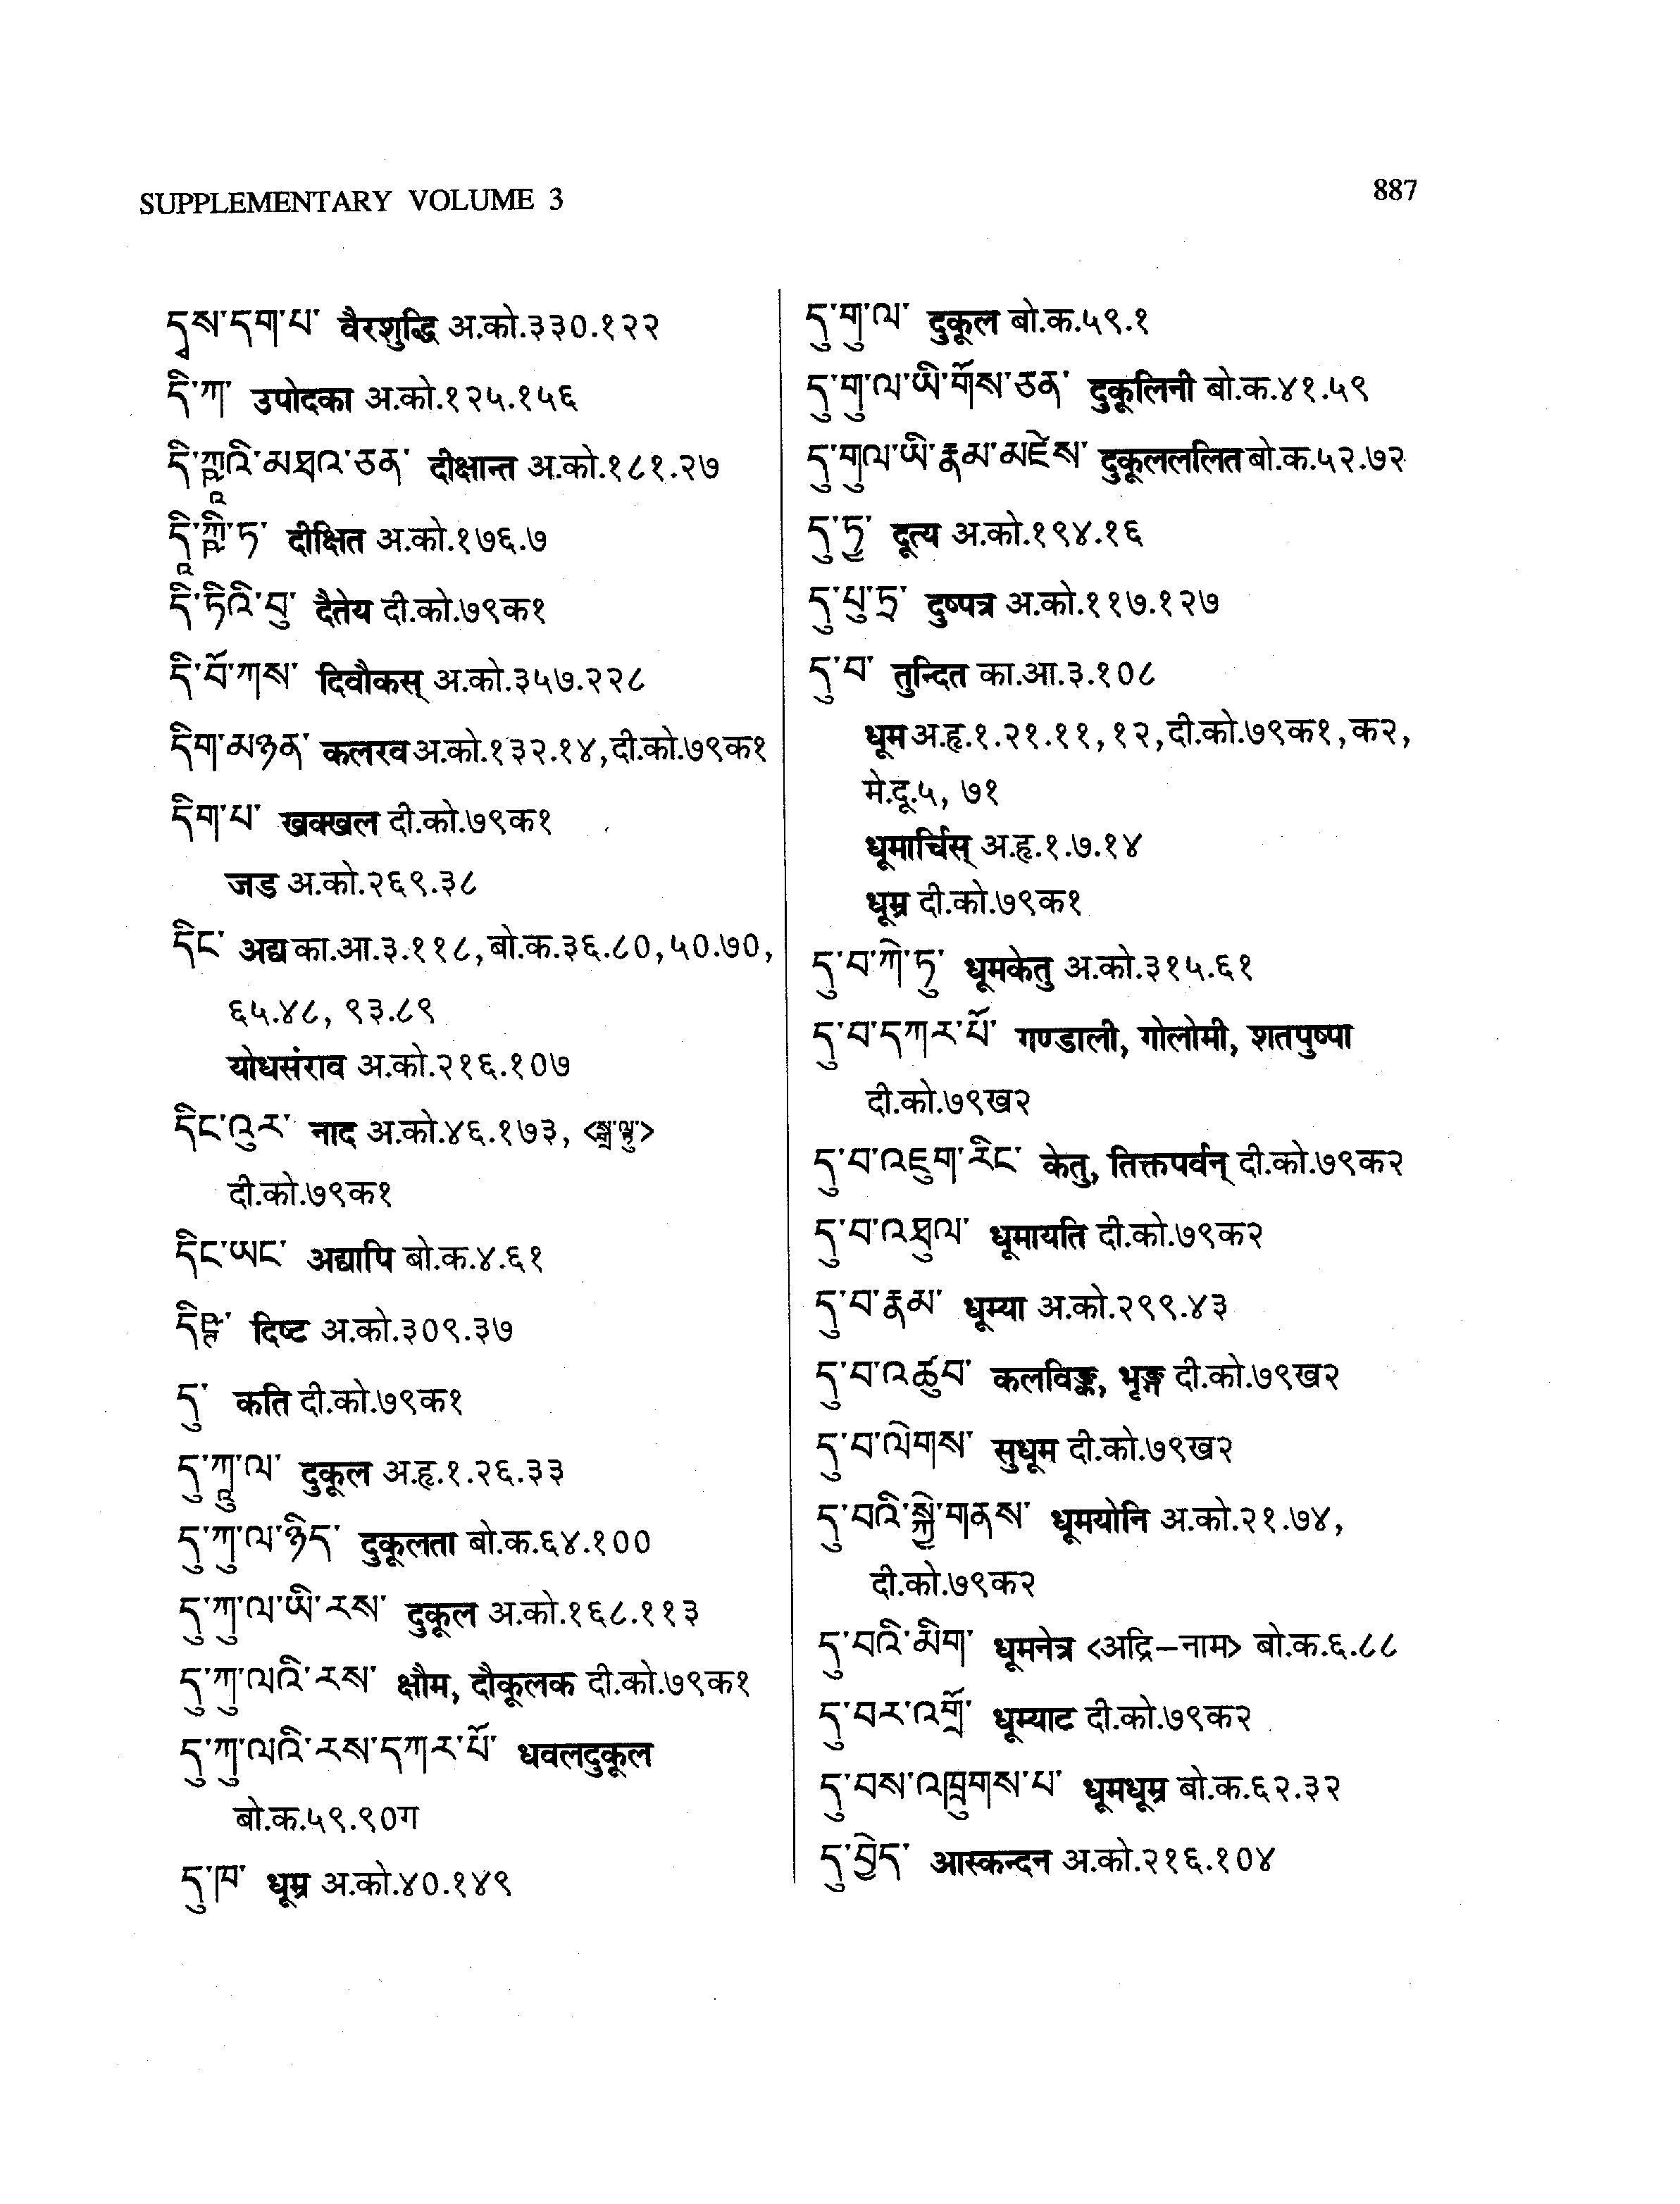 SUPPLEMENTARY VOLUME 3
887
དྭས་དག་པ་ वैरशुद्धि अ.को.३३०.१२२
དི་ཀ་ उपोदका अ.को.१२५.१५६
दीक्षान्त अ.को.१८१.२७
दीक्षित अ.को.१७६.७
དི་ཏིའི་བུ་ दैतेय दी.को.७९क१
དི་བོ་ཀས་ दिवौकस् अ.को.३५७.२२८
དིག་མཉན་ कलरव अ.को.१३२.१४, दी.को.७९क१
དིག་པ་ खक्खल दी.को.७९क१
जड अ.को.२६९.३८
དིང་ अद्य का.आ.३.११८, बो.क.३६.८०, ५०.७०,
६५.४८, ९३.८९
योधसंराव अ.को.२१६.१०७
དིང་འུར་ नाद अ.को.४६.१७३, <སྒྲ་ལྟ་བུ་>
दी.को.७९क१
དིང་ཡང་ अद्यापि बो.क.४.६१
དིཥྚ་ दिष्ट अ.को.३०९.३७
དུ་ कति दी.को.७९क१
དུ་ཀཱུ་ལ་ दुकूल अ.हृ.१.२६.३३
དུ་ཀུ་ལ་ཉིད་ दुकूलता बो.क.६४.१००
དུ་ཀུ་ལ་ཡི་རས་ दुकूल अ.को.१६८.११३
དུ་ཀུ་ལའི་རས་ क्षौम, दौकूलक दी.को.७९क१
དུ་ཀུ་ལའི་རས་དཀར་པོ་ धवलदुकूल
बो.क.५९.९०ग
དུ་ཁ་ धूम्र अ.को.४०.१४९
དུ་གུ་ལ་ दुकूल बो.क.५९.१
དུ་གུ་ལ་ཡི་གོས་ཅན་ दुकूलिनी बो.क.४१.५९
དུ་གུལ་ཡི་རྣམ་མཛེས་ दुकूलललित बो.क.५२.७२
དུ་ཏྱ་ दूत्य अ.को.१९४.१६
དུ་པུ་ཏྲ་ दुष्पत्र अ.को.११७.१२७
དུ་བ་ तुन्दित का.आ.३.१०८
धूम अ.हृ.१.२१.११, १२, दी.को.७९क१, क२,
मे.दू.५, ७१
धूमार्चिस् अ.हृ.१.७.१४
धूम्र दी.को.७९क१
དུ་བ་ཀེ་ཏུ་ धूमकेतु अ.को.३१५.६१
དུ་བ་དཀར་པོ་ गण्डाली, गोलोमी, शतपुष्पा
दी.को.७९ख२
དུ་བ་འཇུག་རིང་ केतु, तिक्तपर्वन् दी.को.७९क२
དུ་བ་འཐུལ་ धूमायति दी.को.७९क२
དུ་བ་རྣམ་ धूम्या अ.को.२९९.४३
དུ་བ་འཚུབ་ कलविङ्क, भृङ्ग दी.को.७९ख२
དུ་བ་ལེགས་ सुधूम दी.को.७९ख२
དུ་བའི་སྐྱེ་གནས་ धूमयोनि अ.को.२१.७४,
दी.को.७९क२
དུ་བའི་མིག་ धूमनेत्र <अद्रि–नाम> बो.क.६.८८
དུ་བར་འགྲོ་ धूम्याट दी.को.७९क२
དུ་བས་འཁྲུགས་པ་ धूमधूम्र बो.क.६२.३२
དུ་བྱེད་ आस्कन्दन अ.को.२१६.१०४